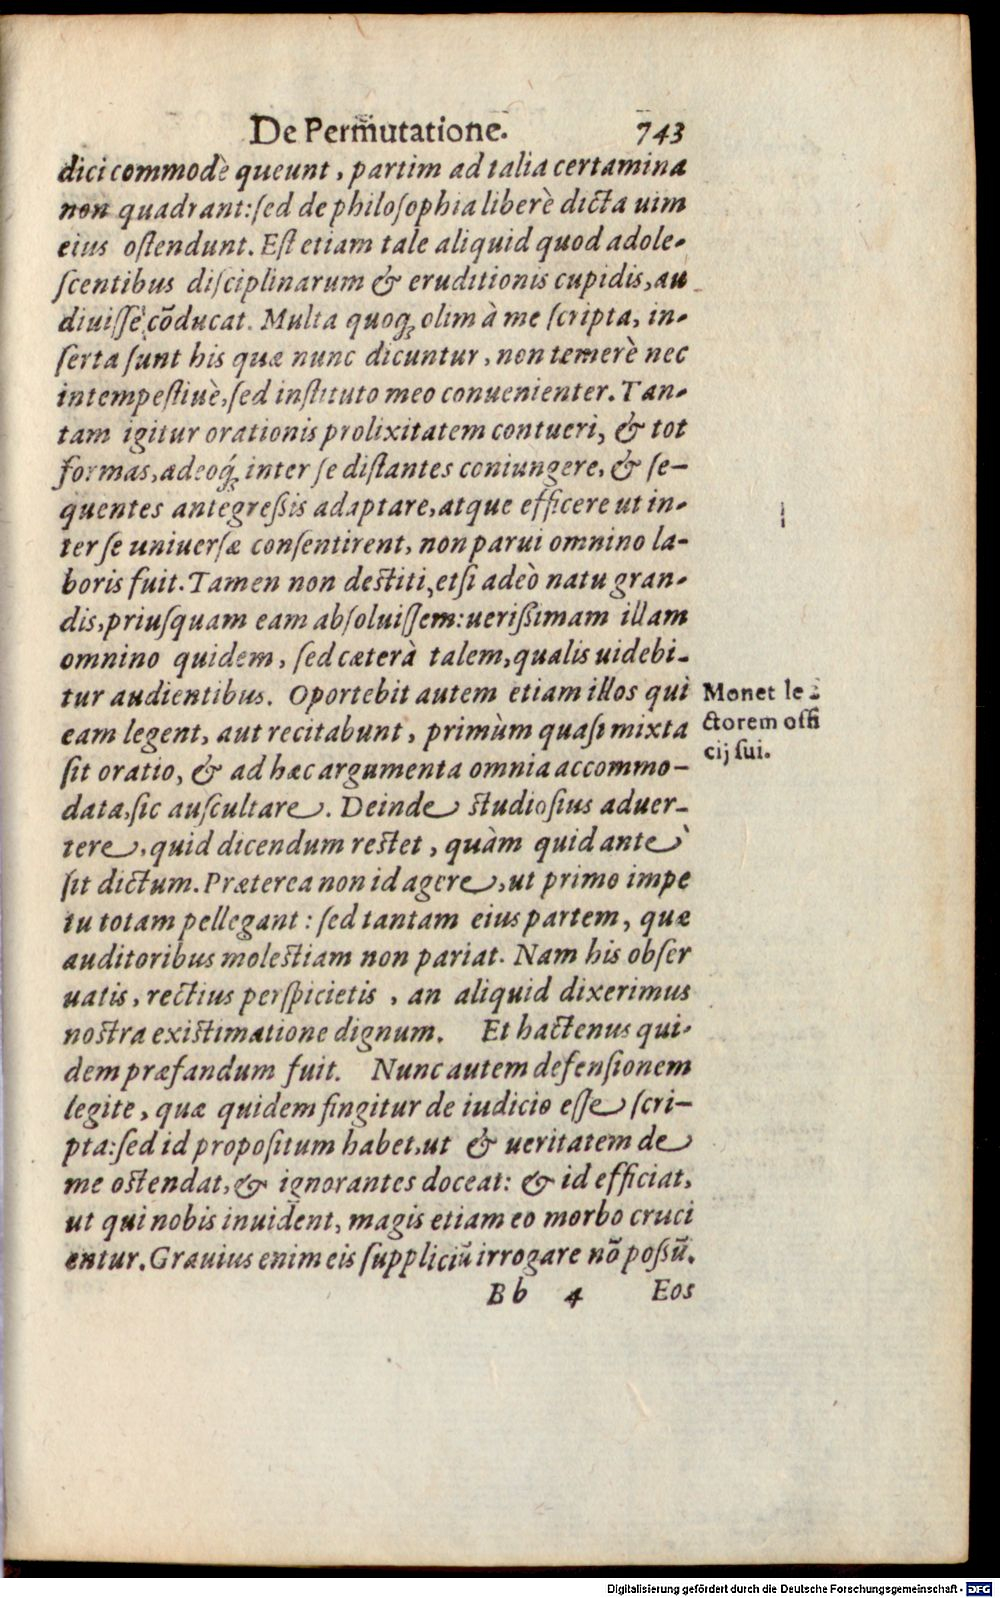 De Perm̃utatione. 743
dici commodè queunt, partim ad talia certamina
non quadrant: ſed de philoſophia liberè dicta uim
eius oſtendunt. Eſt etiam tale aliquid quod adole-
ſcentibus diſciplinarum & eruditionis cupidis, au
diuiſſe cõducat. Multa quoq; olim à me ſcripta, in-
ſerta ſunt his quæ nunc dicuntur, non temerè nec
intempeſtiuè, ſed inſtituto meo conuenienter. Tan-
tam igitur orationis prolixitatem contueri, & tot
formas, adeoq́; inter ſe diſtantes coniungere, & ſe-
quentes antegreßis adaptare, atque efficere ut in-
ter ſe uniuerſæ conſentirent, non parui omnino la-
boris fuit. Tamen non deſtiti, etſi adeò natu gran-
dis, priuſquam eam abſoluiſſem: uerißimam illam
omnino quidem, ſed cæterà talem, qualis uidebi-
tur audientibus. Oportebit autem etiam illos qui
eam legent, aut recitabunt, primùm quaſi mixta
ſit oratio, & ad hæc argumenta omnia accommo-
data, ſic auſcultare. Deinde ſtudioſius aduer-
tere, quid dicendum reſtet, quàm quid ante
ſit dictum. Præterea non id agere, ut primo impe
tu totam pellegant: ſed tantam eius partem, quæ
auditoribus moleſtiam non pariat. Nam his obſer
uatis, rectius perſpicietis, an aliquid dixerimus
noſtra exiſtimatione dignum. Et hactenus qui-
dem præfandum fuit. Nunc autem defenſionem
legite, quæ quidem fingitur de iudicio eſſe ſcri-
pta: ſed id propoſitum habet, ut & ueritatem de
me oſtendat, & ignorantes doceat: & id efficiat,
ut qui nobis inuident, magis etiam eo morbo cruci
entur. Grauius enim eis ſuppliciũ irrogare nõ poßũ.
Bb 4 Eos
Monet le
ctorem offi
cij ſui.
Digitalisierung gefördert durch die Deutsche Forschungsgemeinschaft - DFG